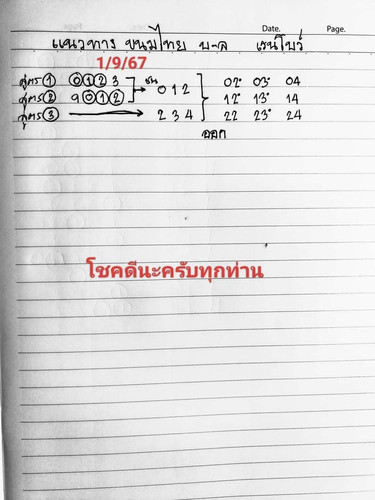 Date. Page.
แนวทาง ขนมไทย บ-ล เรนโบว์
1/9/67
สูตร 1 0 1 2 3 ชน 0 1 2 02 03 04
สูตร 2 9 0 1 2 12 13 14
สูตร 3 2 3 4 22 23 24
ออก
โชคดีนะครับทุกท่าน